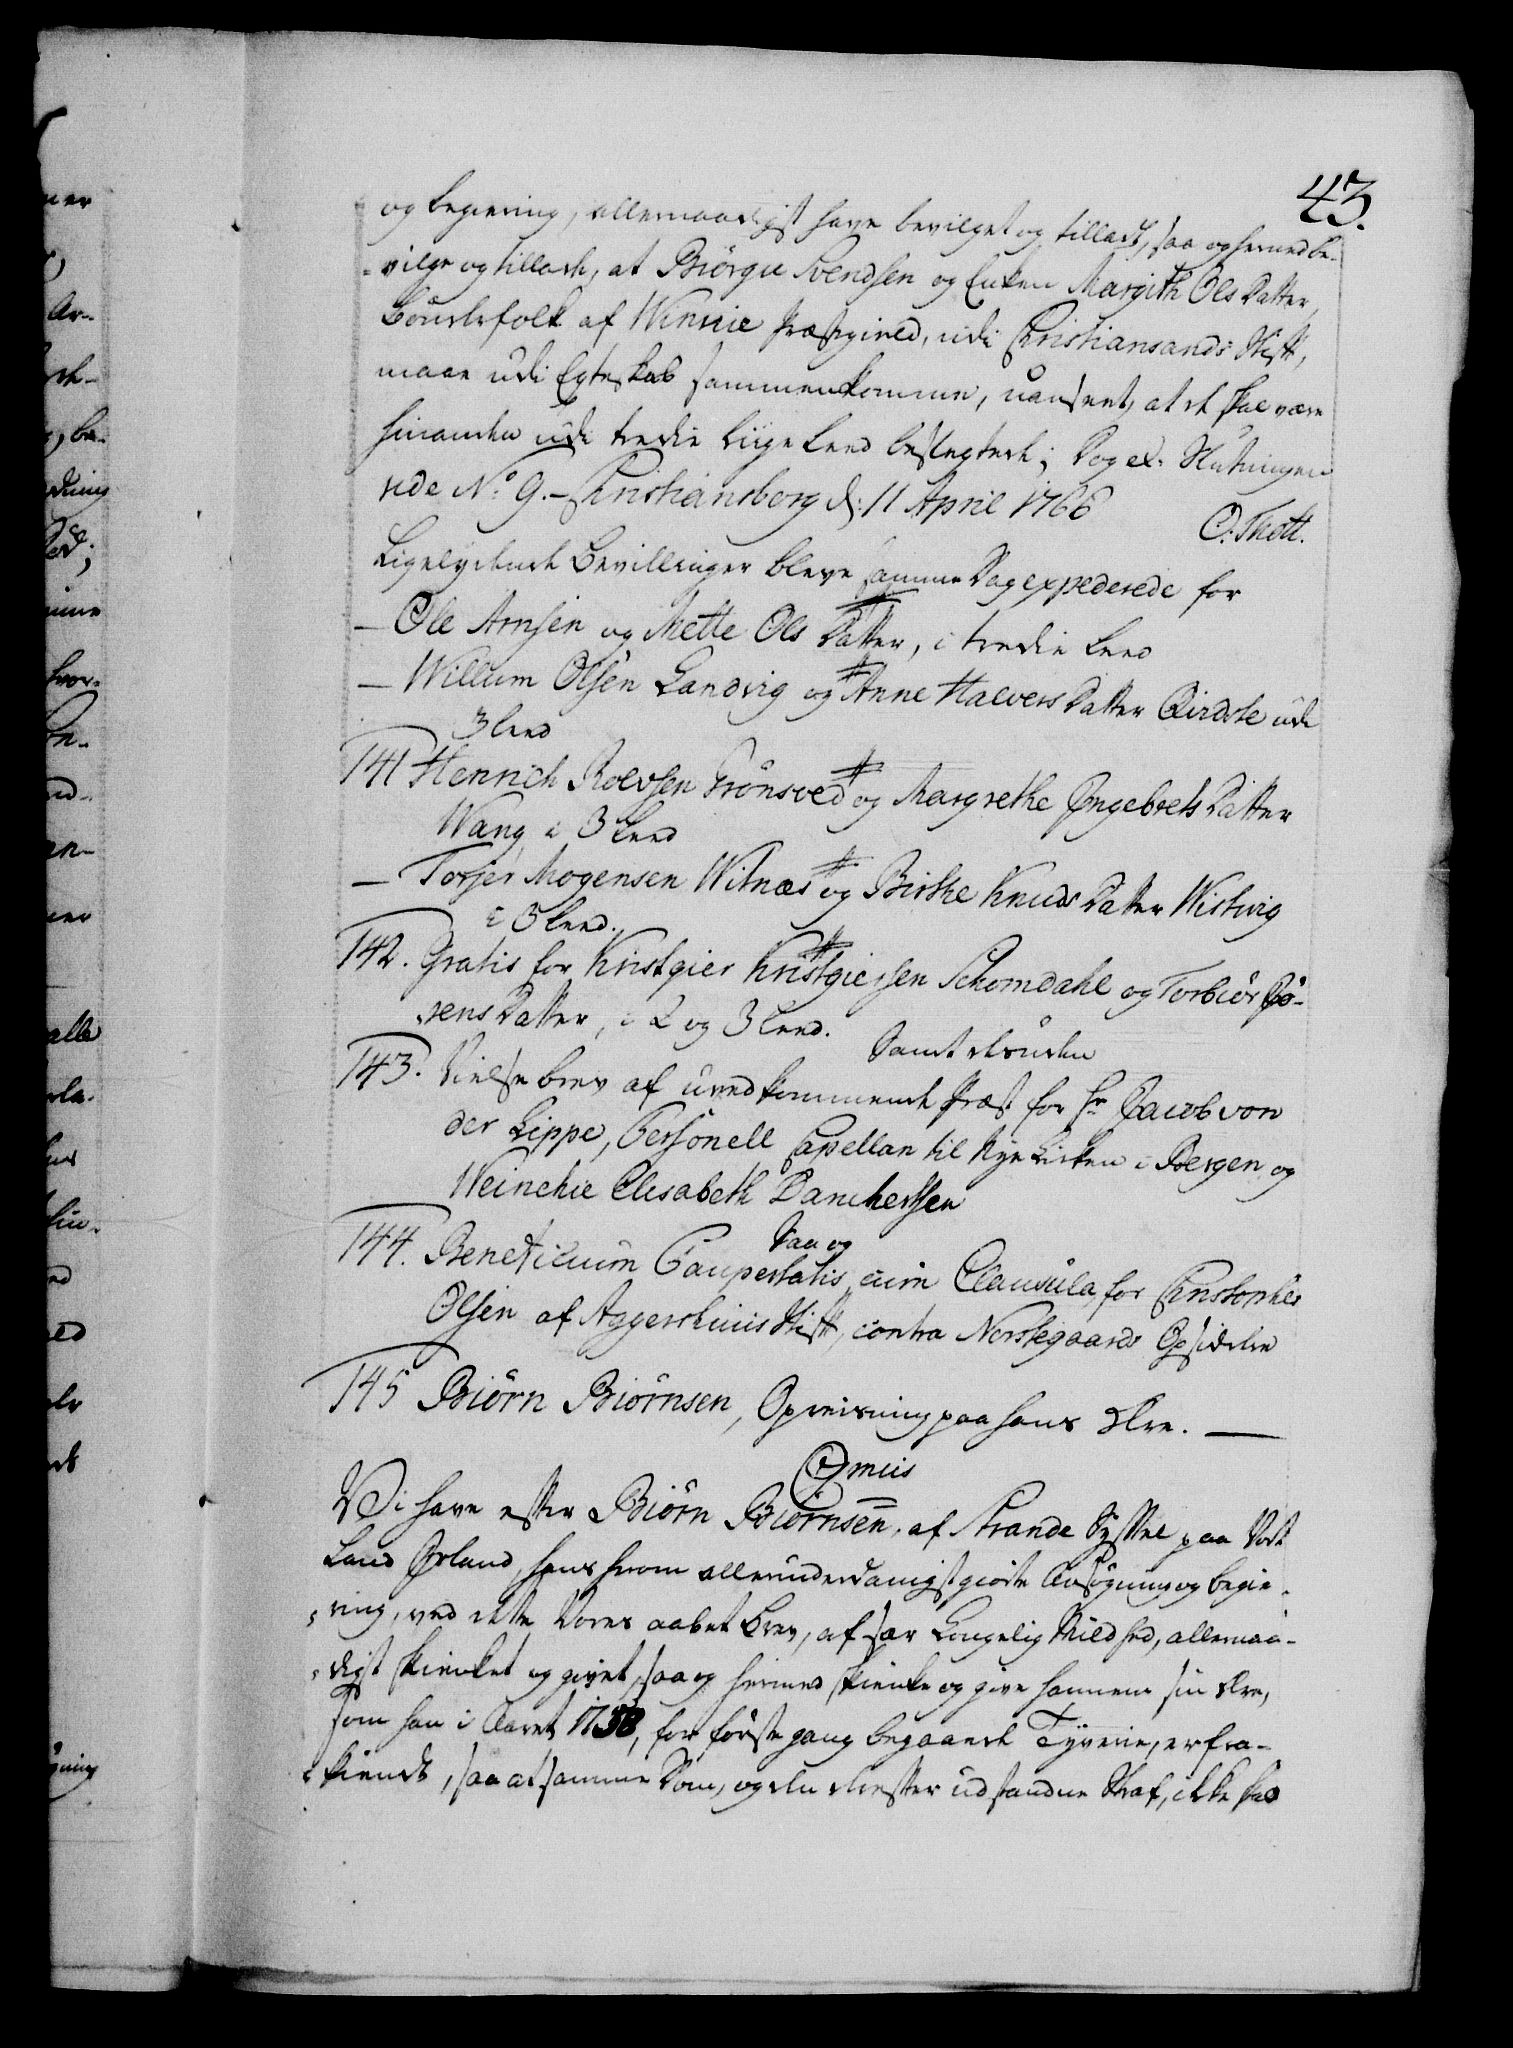 43.
og begiering, allernaadigst have bevilget og tilladt, saa og hermed be-
vilge og tillade, at Biörgu Svendsen og Enken Margith Ols Datter,
Bönderfolk af Winnie Præstegield, udi Christiansands Stift,
maae udi Egteskab sammenkomme, uanseet, at de skal være
hinanden udi tredie Liige Leed beslegtede; Dog etc. Slutningen
vide No 9. – Christiansborg d: 11 April 1766
O. Thott.
Ligelydende Bevillinger bleve samme Dag expederede for
– Ole Arnsen og Mette Ols Datter, i tredie Leed
– Willum Olsen Landvig og Anne Halvers Datter Qirdole udi
3 Leed
141 Henrich Rolvsen Grönsved og Margrethe Ingebrets Datter
Wang i 3 Leed
– Torjer Mogensen Witnæs og Birthe Knuds Datter Wistvig
i 3 Leed.
142. Gratis for Kristgier Kristgiersen Schomdahl og Torbiör Jö-
rens Datter, i 2 og 3 Leed.
Samt desuden
143. Vielse brev af uvedkommende Præst for Hr Jacob von
der Lippe, Personell Capellan til Nye Kirken i Bergen og
Weinchie Elisabeth Danchertsen
Saa og
144. Beneficium Paupertatis, cum Clausula, for Christopher
Olsen af Aggershuus Stift, contra Norskegaards Opsidden
145 Biörn Biörnsen, Opreisning paa hans Ære. –
Vi have efter Biörn Biörnsen, af Strande Syssel paa Vort
Land Island, hans herom allerunderdanigst giorte Ansögning og begie-
ring, ved dette Vores aabet Brev, af sær Kongelig Mildhed, allernaa-
digst skienket og givet, saa og hermed skienke og give hannem sin Ære,
som han i Aaret 1758, for förste gang begaaende Tyverie, er fra-
kiendt, saa at samme Dom, og den derefter udstandne Straf, ikke skal